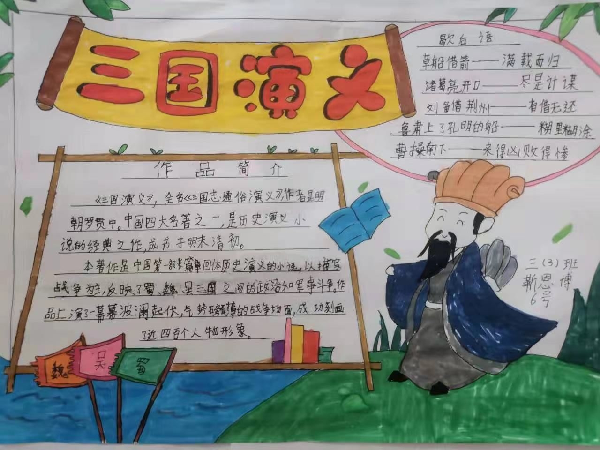 三国演义
歇后语
草船借箭——满载而归
诸葛亮开口——不是计谋
刘备借荆州——有借无还
鲁肃上了孔明的船——糊里糊涂
曹操败下——来得凶败得惨
作品简介
《三国演义》,全名《三国志通俗演义》作者是明
朝罗贯中,中国四大名著之一是历史演义小
说的经典之作,成书于明末清初。
本著作是中国第一部长篇章回体历史演义的小说,以描写
战争为主,反映了蜀、魏、吴三国之间的政治和军事斗争,作
品上演了一幕幕波澜起伏、气势磅礴的战争场面,成功刻画
了近四百个人物形象。
魏
吴
蜀
三(3)班